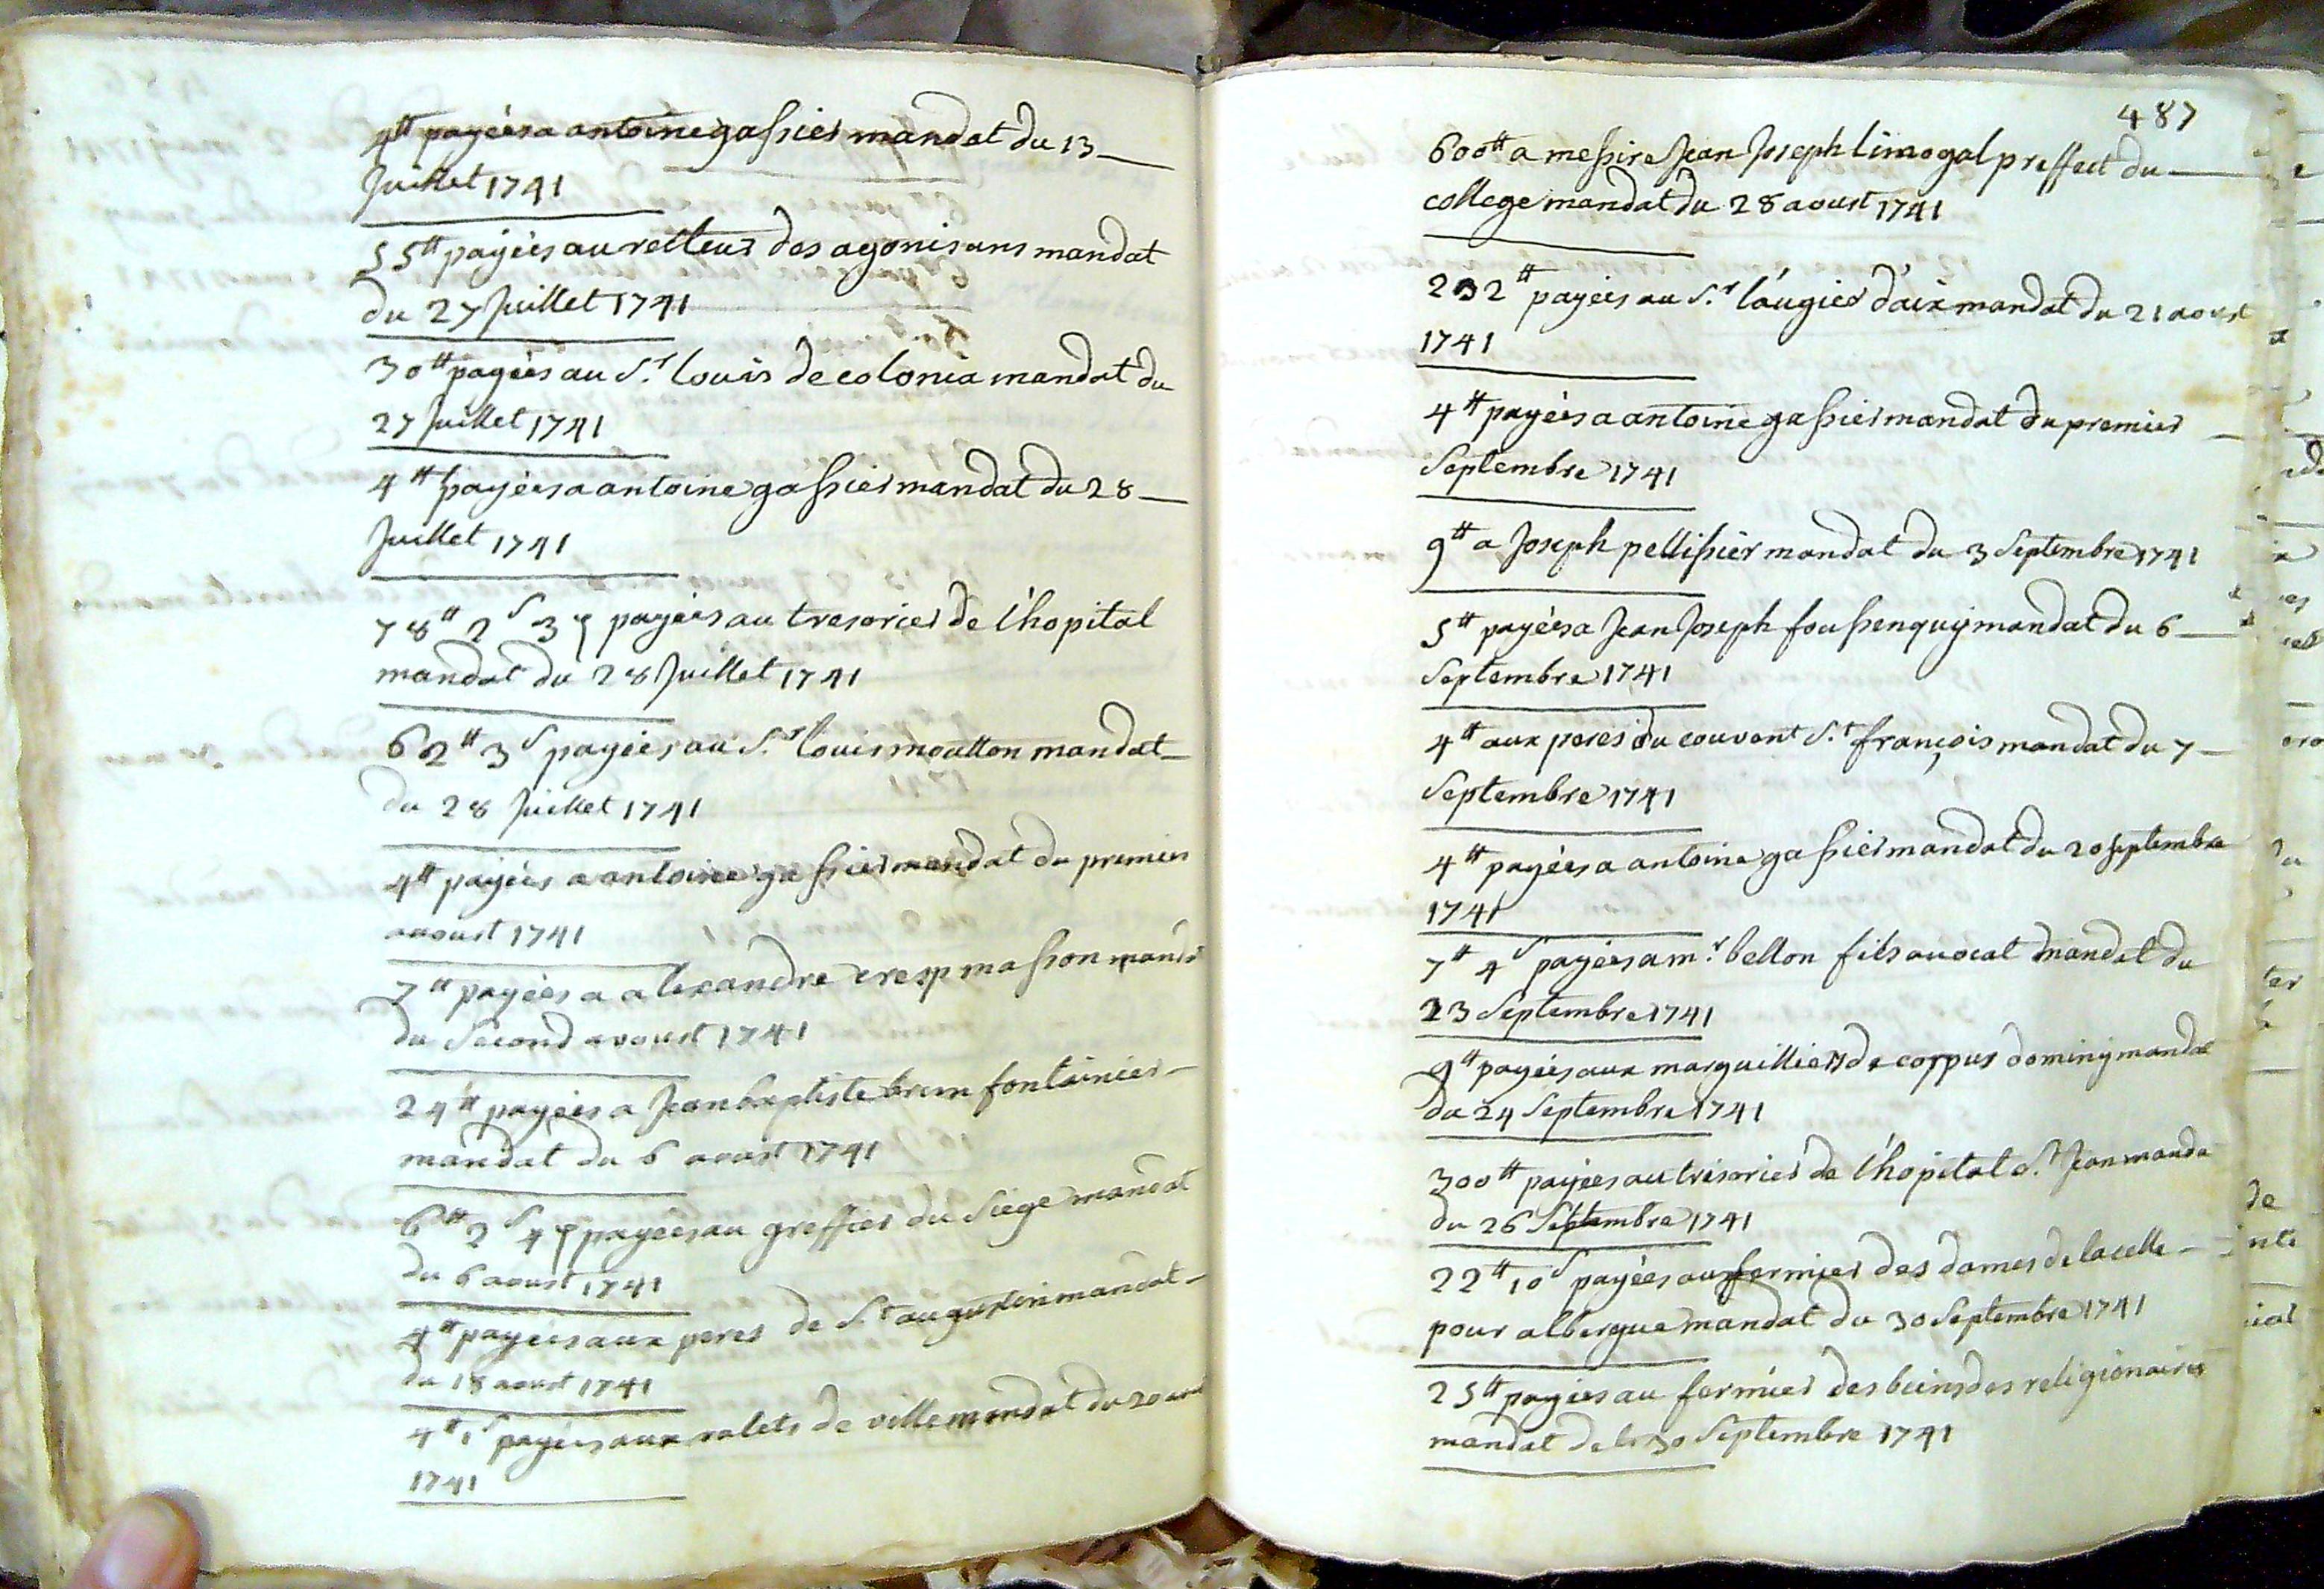 4tt payées a antoine gassier mandat du 13
Juillet 1741
55tt payées au recteur des agonisans mandat
du 27 Juillet 1741
30tt payées au S.r louis de colonia mandat du
27 Juillet 1741
4tt payées a antoine gassier mandat du 28
Juillet 1741
78tt 2s 3d payées au tresorier de l'hopital
mandat du 28 Juillet 1741
62tt 3s payées au S.r louis moutton mandat
du 28 Juillet 1741
4tt payées a antoine gassier mandat du premier
avoust 1741
7tt payées a alexandre cresp masson mandt
du Second avoust 1741
24tt payées a Jean baptiste brun fontainier
mandat du 6 aoust 1741
6tt 2s 4d payées au greffier du Siege mandat
du 6 aoust 1741
4tt payées aux peres de S.t augustin mandat
du 18 aoust 1741
4tt 1s payées aux valets de ville mandat du 20 aoust
1741
487
600tt a messire Jean Joseph limogal preffect du
college mandat du 28 aoust 1741
232tt payées au S.r laugier d'aix mandat du 21 aoust
1741
4tt payées a antoine gassier mandat du premier
Septembre 1741
9tt a Joseph pellissier mandat du 3 Septembre 1741
5tt payées a Jean Joseph foussenquy mandat du 6
Septembre 1741
4tt aux peres du couvent S.t françois mandat du 7
Septembre 1741
4tt payées a antoine gassier mandat du 20 septembre
1741
7tt 4s payées a m.r bellon fils avocat mandat du
23 Septembre 1741
9tt payées aux marguilliers de corpus dominy mandat
du 24 Septembre 1741
300tt payées au trésorier de l'hopital S.t Jean manda
du 26 Septembre 1741
22tt 10s payées au fermier des dames de lacelle
pour albergue mandat du 30 Septembre 1741
25tt payées au fermier des biens des religionaires
mandat de le 30 Septembre 1741